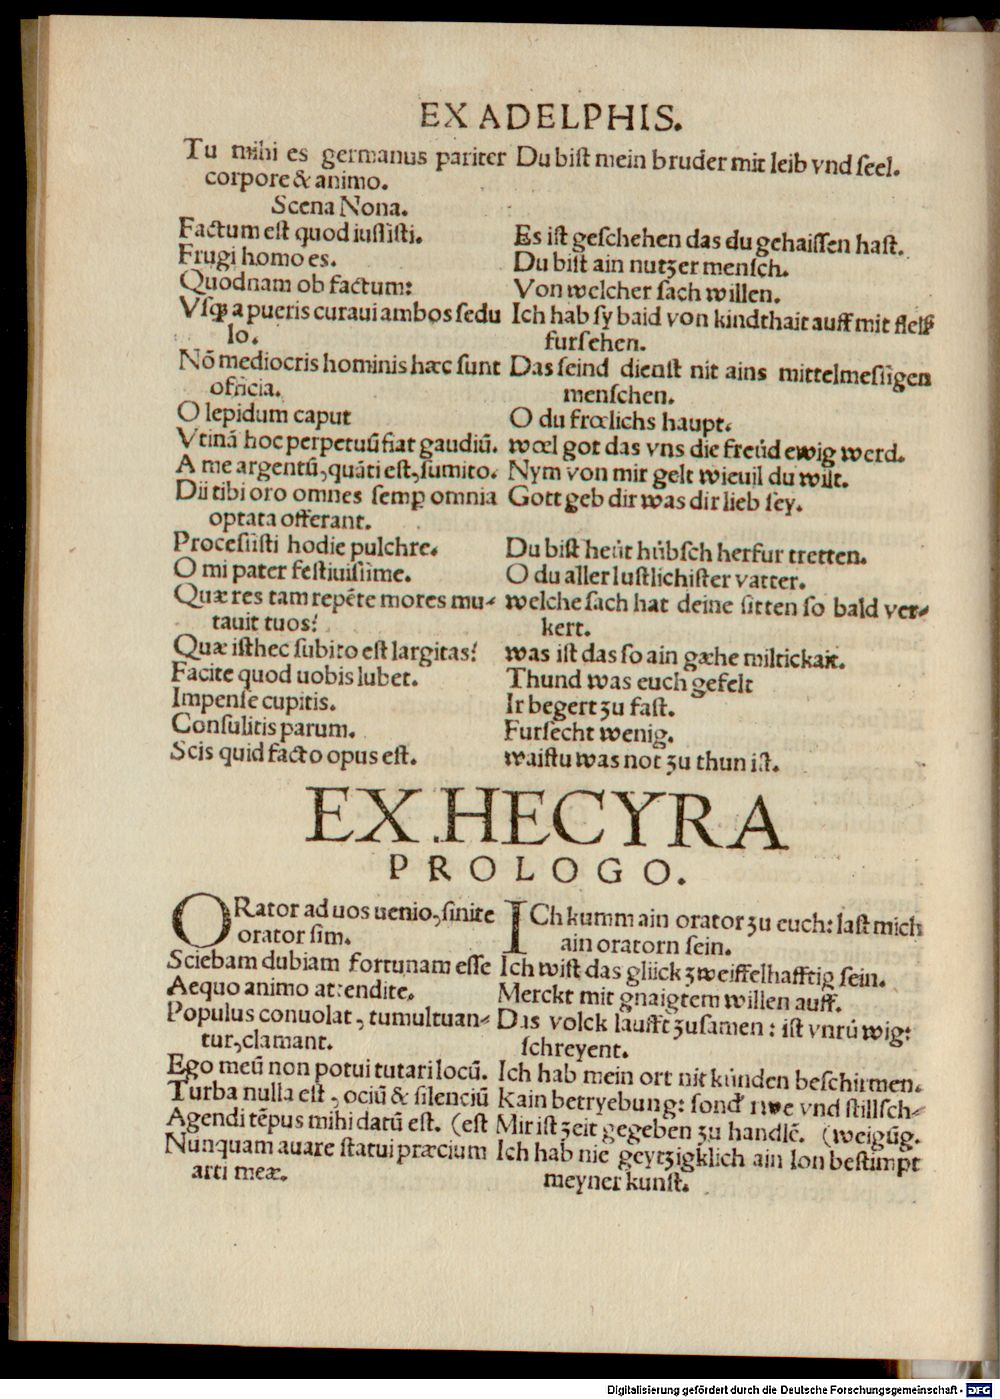 EX ADELPHIS.
Tu mihi es germanus pariter Du bist mein bruder mit leib vnd seel.
corpore & animo.
Scena Nona.
Factum est quod iussisti. Es ist geschehen das du gehaissen hast.
Frugi homo es. Du bist ain nutzer mensch.
Quodnam ob factum: Von welcher sach willen.
Vsqꝫ a pueris curaui ambos sedu Ich hab sy baid von kindthait auff mit fleiß
lo. fursehen.
Nō mediocris hominis hæc sunt Das seind dienst nit ains mittelmessigen
officia. menschen.
O lepidum caput O du frœlichs haupt.
Vtinā hoc perpetuū fiat gaudiū. wœl got das vns die freüd ewig werd.
A me argentū, quāti est, sumito. Nym von mir gelt wieuil du wilt.
Dii tibi oro omnes semꝑ omnia Gott geb dir was dir lieb sey.
optata offerant.
Processisti hodie pulchre. Du bist heüt hübsch herfur tretten.
O mi pater festiuissime. O du aller lustlichister vatter.
Quæ res tam repēte mores mu- welche sach hat deine sitten so bald ver-
tauit tuos? kert.
Quæ isthec subito est largitas? was ist das so ain gæhe miltickait.
Facite quod uobis lubet. Thund was euch gefelt
Impense cupitis. Ir begert zu fast.
Consulitis parum. Fursecht wenig.
Scis quid facto opus est. waistu was not zu thun ist.
EX HECYRA
PROLOGO.
ORator ad uos uenio, sinite ICh kumm ain orator zu euch: last mich
orator sim. ain oratorn sein.
Sciebam dubiam fortunam esse Ich wist das glück zweiffelhafftig sein.
Aequo animo attendite. Merckt mit gnaigtem willen auff.
Populus conuolat, tumultuan- Das volck laufft zusamen: ist vnrüwig:
tur, clamant. schreyent.
Ego meū non potui tutari locū. Ich hab mein ort nit künden beschirmen.
Turba nulla est, ociū & silenciū Kain betryebung: sond' rwe vnd stillsch-
Agendi tēpus mihi datū est. (est Mir ist zeit gegeben zu handlē. (weigūg.
Nunquam auare statui præcium Ich hab nie geytzigklich ain lon bestimpt
arti meæ. meyner kunst.
Digitalisierung gefördert durch die Deutsche Forschungsgemeinschaft - DFG